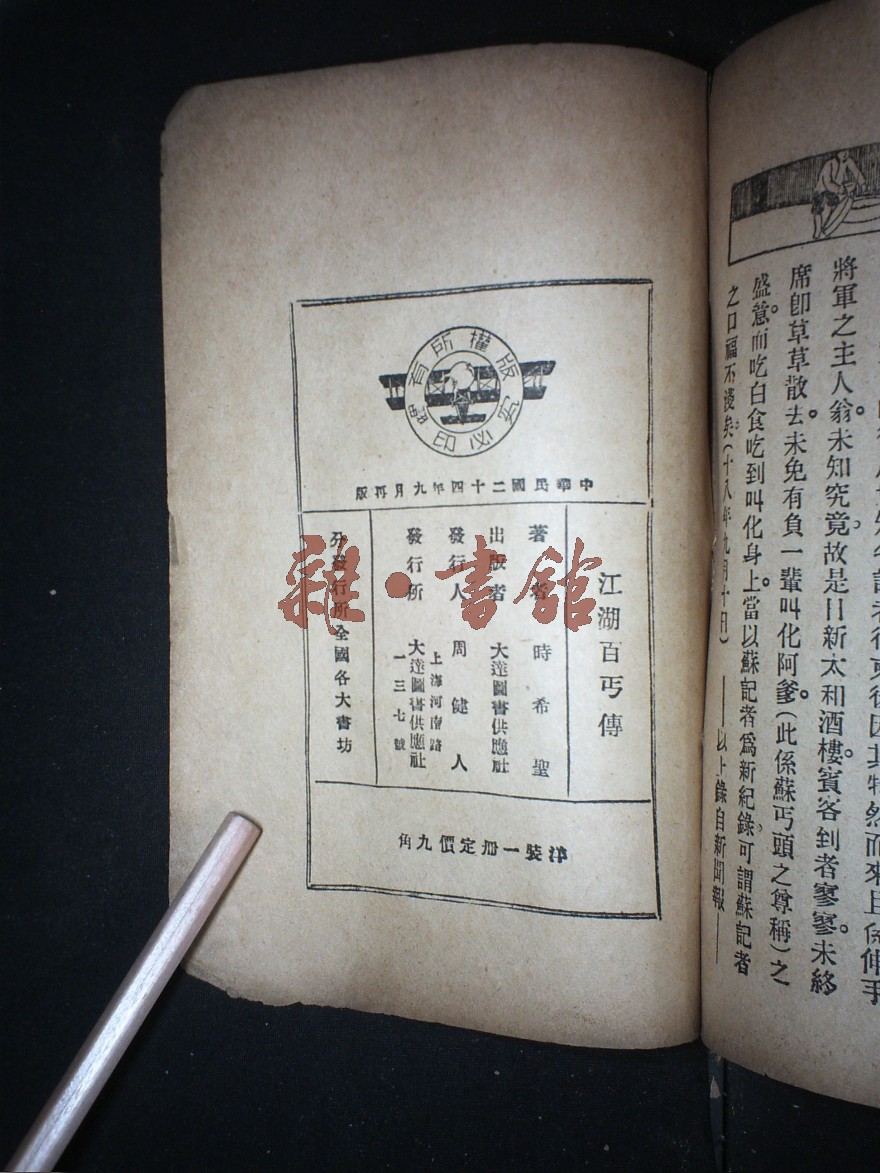 因其特然而來且係伸手
將軍之主人翁。未知究竟。故是日新太和酒樓。賓客到者寥寥。未終
席卽草草散去。未免有負一輩叫化阿爹(此係蘇丐頭之尊稱)之
盛意。而吃白食吃到叫化身上。當以蘇記者爲新紀錄。可謂蘇記者
之口福不淺矣。(十八年九月十日)——以上錄自新聞報——
版權所有
翻印必究
中華民國二十四年九月再版
江湖百丐傳
著者 時希聖
出版者 大達圖書供應社
發行人 周健人
發行所 上海河南路
大達圖書供應社
一三七號
分發行所全國各大書坊
洋裝一册定價九角
雜·書館